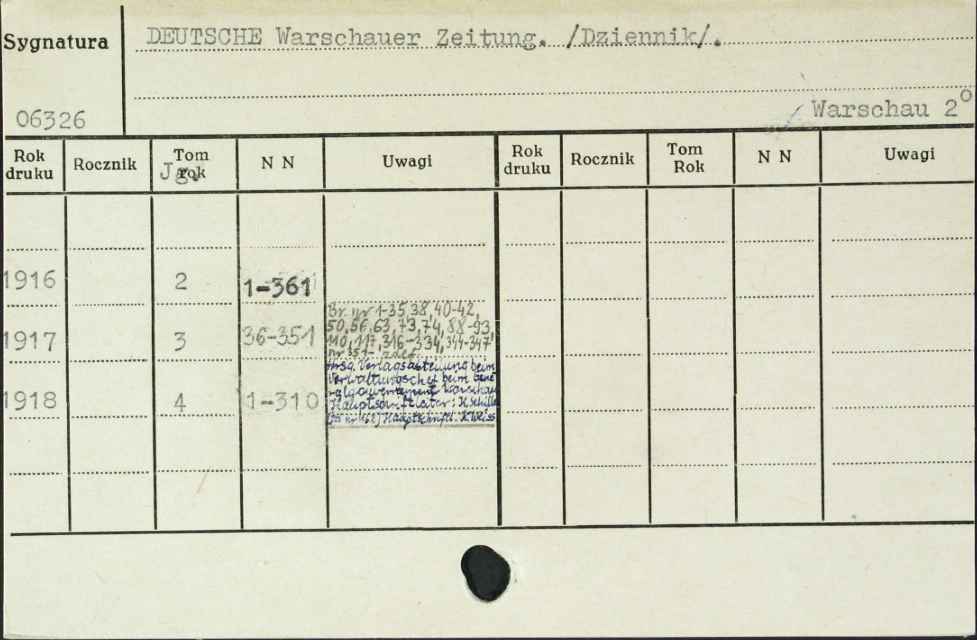 Sygnatura
DEUTSCHE Warschauer Zeitung. /Dziennik/.
06326
Warschau 2°
Rok druku Rocznik Tom rok Jg. N N Uwagi Rok druku Rocznik Tom Rok N N Uwagi
1916 2 1-361
Br. nr 1-35, 38, 40-42,
50, 56, 63, 73, 74, 88-93,
1917 3 36-351
110, 117, 316-334, 344-347
nr 351- zdef.
Hrsg. Verlagsabteilung beim
Verwaltungschef beim Gene
ralgouvernement Warschau
1918 4 1-310